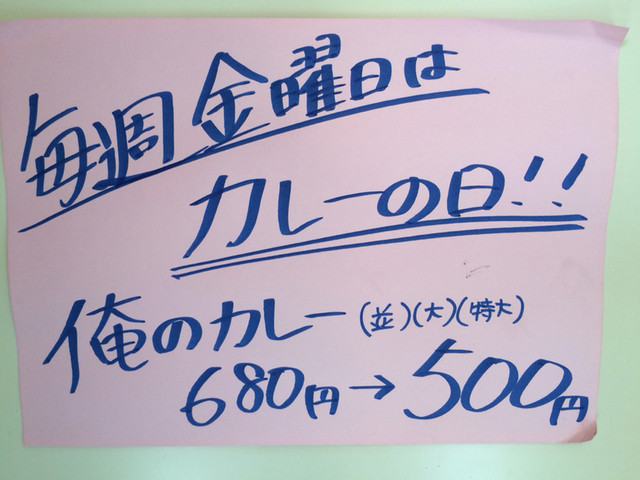 毎週金曜日は
カレーの日!!
俺のカレー(並)(大)(特大)
680円→500円